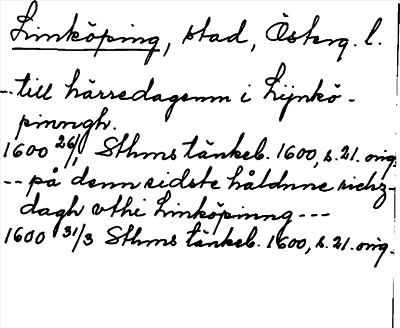 Linköping, stad, Österg. l.
-- till härredagenn i Lijnkö-
pinngh.
1600 26/1 Sthms tänkeb. 1600, s. 21. orig.
-- på denn sidste håldnne richz-
dagh vthi Linköpinng ---
1600 31/3 Sthms tänkeb. 1600, s. 21. orig.